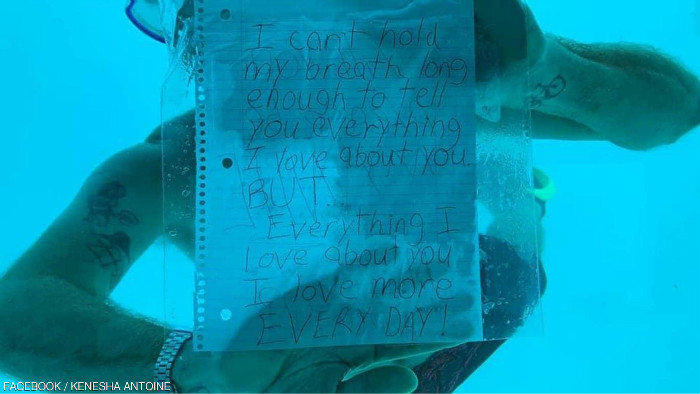 I can't hold
my breath long
enough to tell
you everything
I love about you.
BUT..
Everything I
love about you
I love more
EVERY DAY!
FACEBOOK / KENESHA ANTOINE